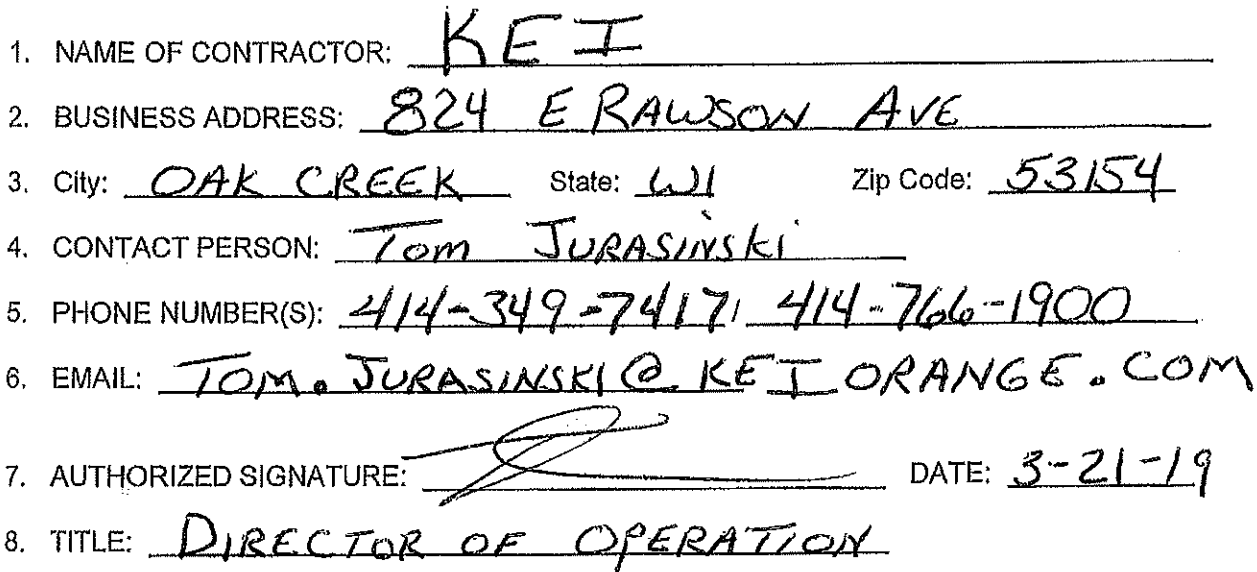 1. NAME OF CONTRACTOR: KEI
2. BUSINESS ADDRESS: 824 E RAWSON AVE
3. City: OAK CREEK State: WI Zip Code: 53154
4. CONTACT PERSON: Tom JURASINSKI
5. PHONE NUMBER(S): 414-349-7417, 414-766-1900
6. EMAIL: TOM.JURASINSKI@KEIORANGE.COM
7. AUTHORIZED SIGNATURE: DATE: 3-21-19
8. TITLE: DIRECTOR OF OPERATION